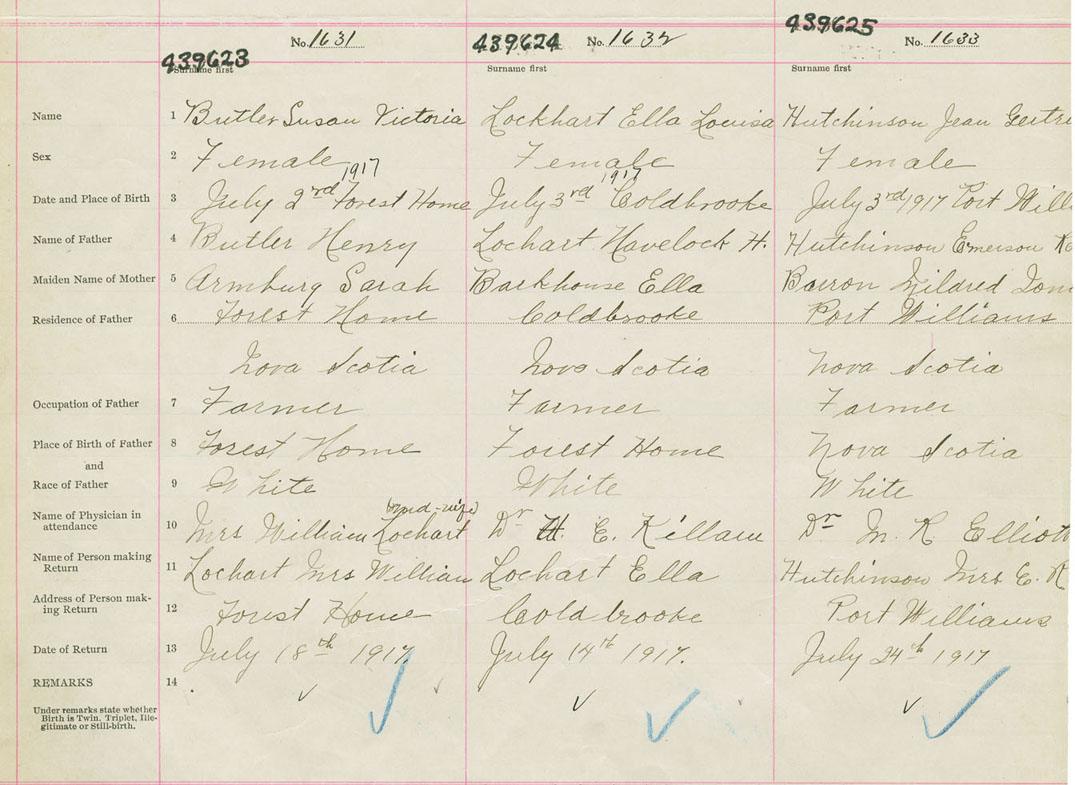 439623 No. 1631 439624 No. 1632 439625 No. 1633
Surname first Surname first Surname first
Name 1 Butler Susan Victoria Lockhart Ella Louisa Hutchinson Jean Gertr
Sex 2 Female Female Female
1917 1917
Date and Place of Birth 3 July 2rd Forest Home July 3rd Coldbrooke July 3rd 1917 Port Will
Name of Father 4 Butler Henry Lochart Havelock H. Hutchinson Emerson R
Maiden Name of Mother 5 Armburg Sarah Barkhouse Ella Mildred
Residence of Father 6 Forest Home Coldbrooke Port Williams
Nova Scotia Nova Scotia Nova Scotia
Occupation of Father 7 Farmer Farmer Farmer
Place of Birth of Father 8 Forest Home Forest Home Nova Scotia
and
Race of Father 9 White White White
(mid-wife)
Name of Physician in
attendance 10 Mrs William Lochart Dr H. E. Killam Dr M. R Elliott
Name of Person making
Return 11 Lochart Mrs William Lochart Ella Hutchinson Mrs E. R
Address of Person mak-
ing Return 12 Forest Home Coldbrooke Port Williams
Date of Return 13 July 18th 1917 July 14th 1917. July 24th 1917
REMARKS 14
Under remarks state whether
Birth is Twin. Triplet, Ille-
gitimate or Still-birth.